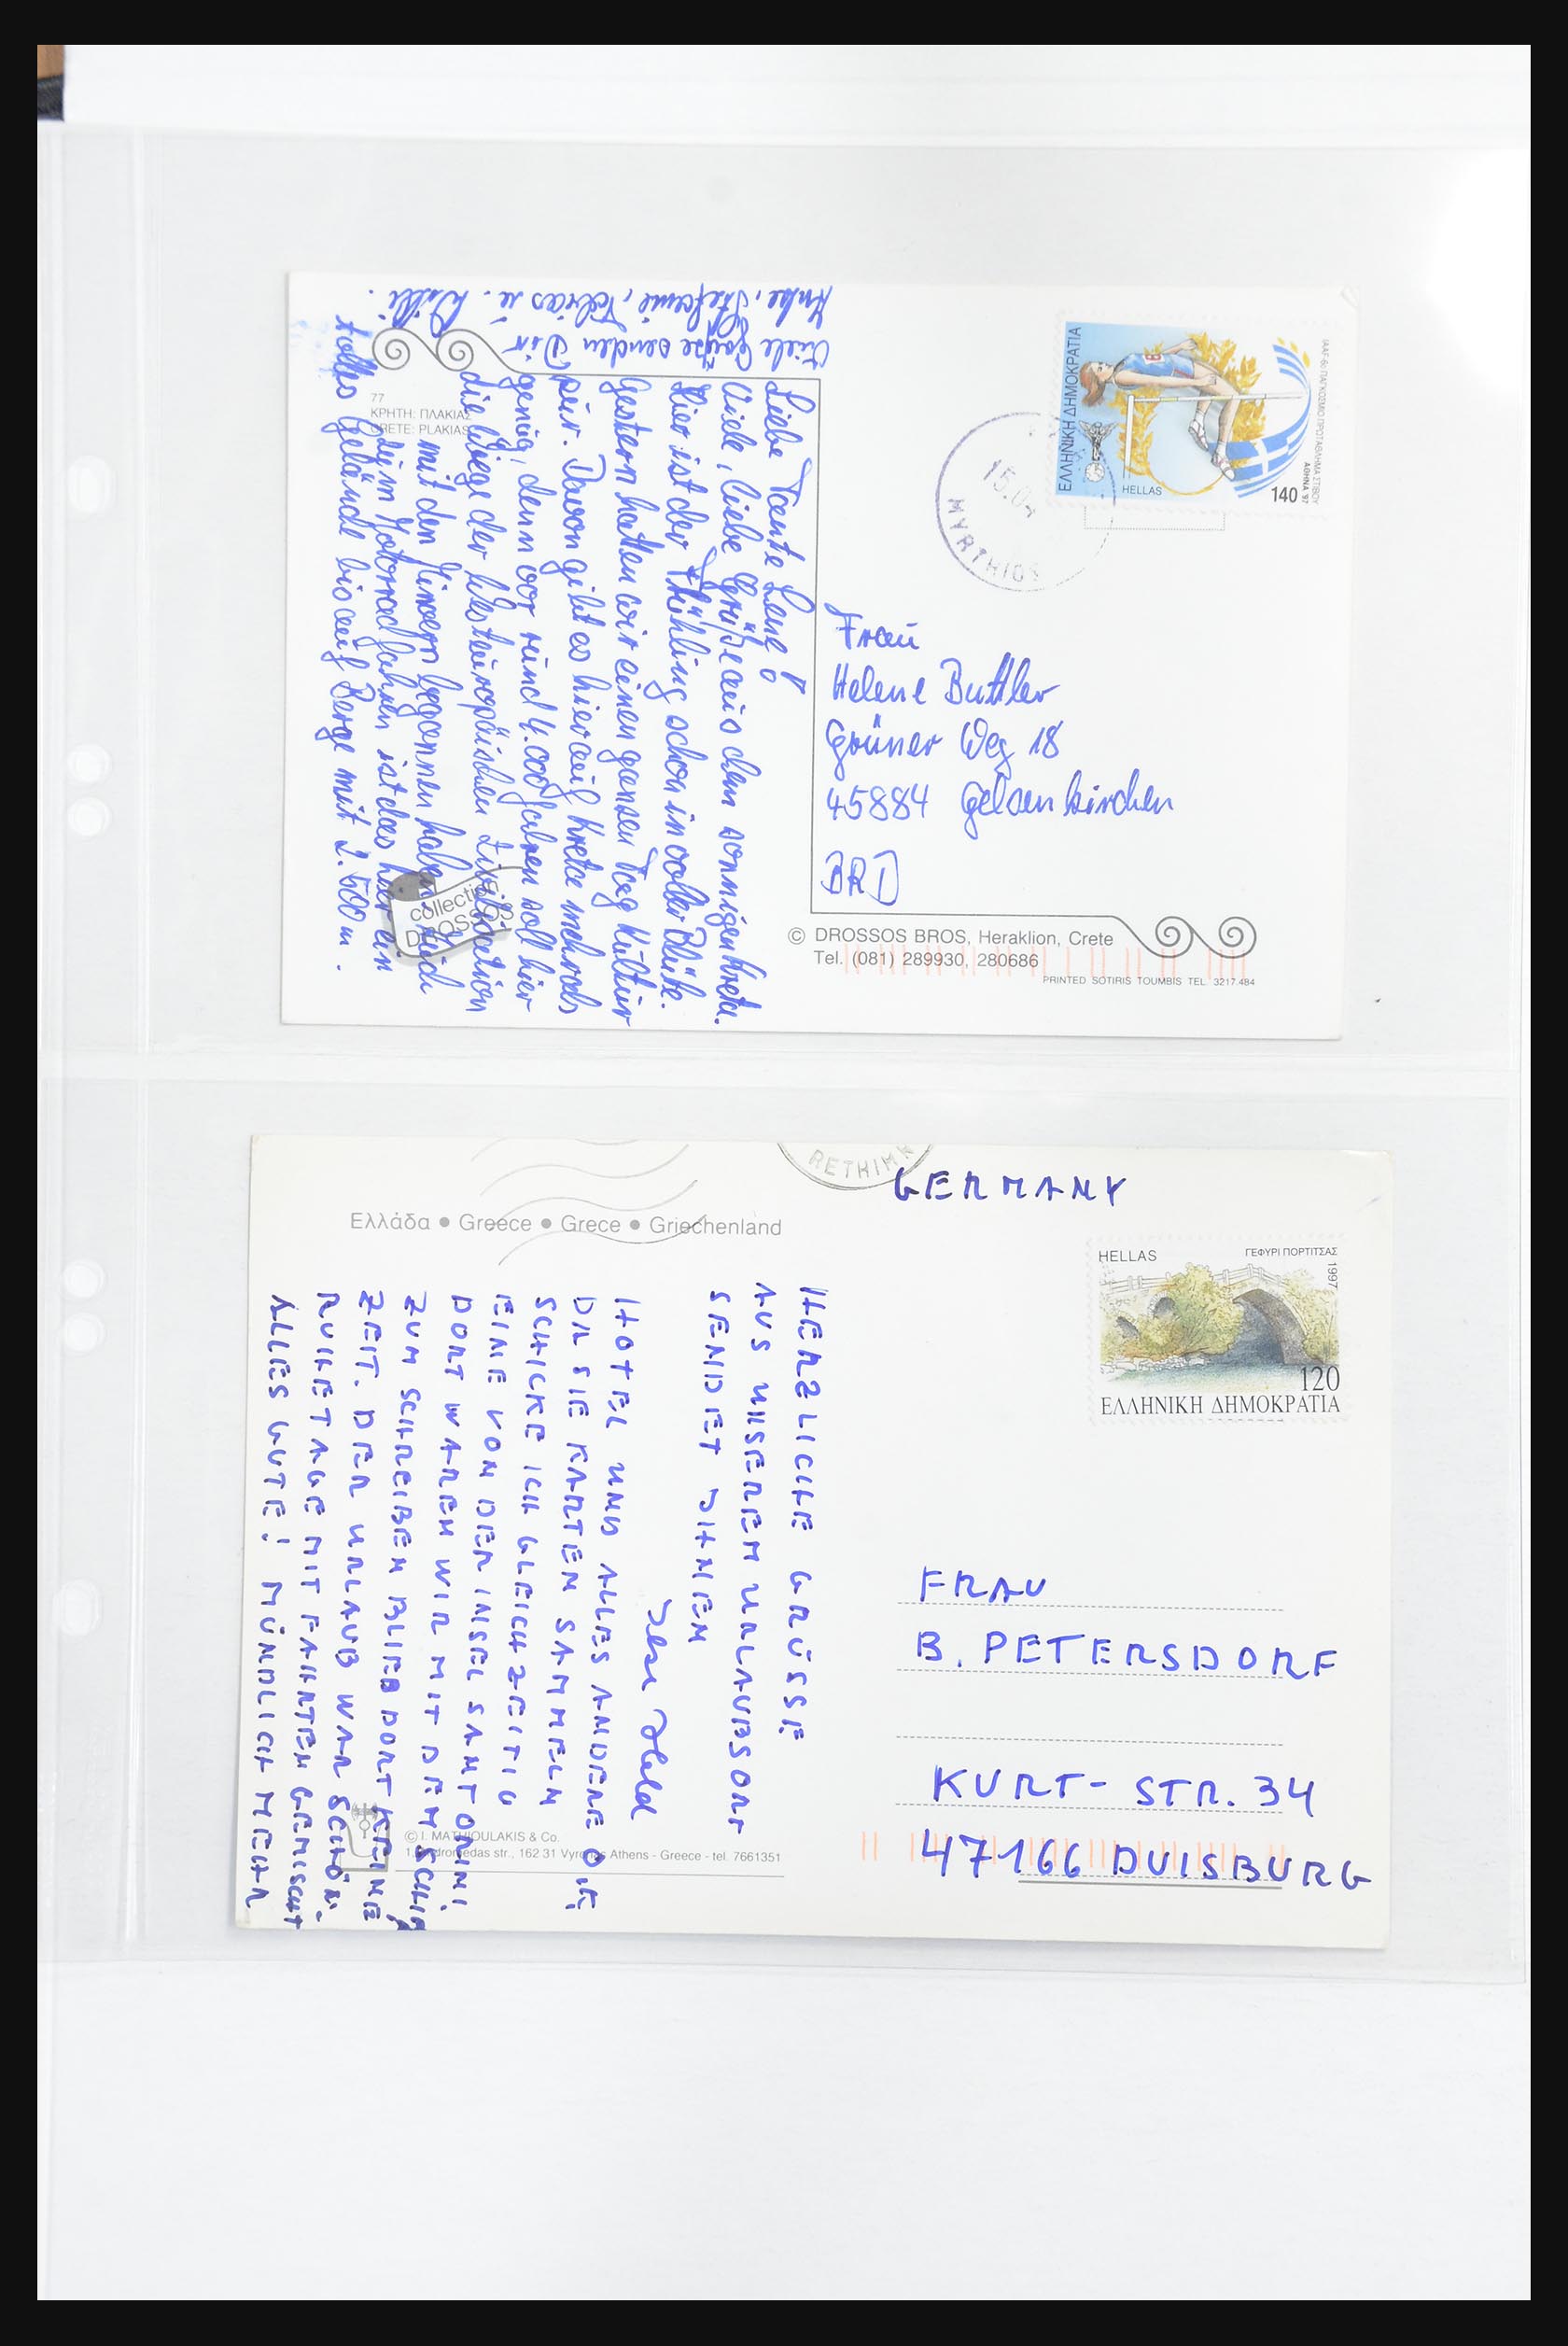 77
ΚΡΗΤΗ: ΠΛΑΚΙΑΣ
CRETE: PLAKIAS
Liebe Tante Lene!
Viele, liebe Grüße aus dem sonnigen Kreta.
Hier ist der Frühling schon in voller Blüte.
Gestern hatten wir einen ganzen Tag Kultur
pur. Davon gibt es hier auf Kreta mehr als
genug, denn vor rund 4.000 Jahren soll hier
die Wiege der Westeuropäischen Zivilisation
mit den Minoern begonnen haben. Auch
zum Motorradfahren ist das hier ein
tolles Gelände bis auf Berge mit 2.500 m.
Viele Grüße senden Dir
Anke, Stefanie, Tobias u. Willi.
collection
DROSSOS
ΕΛΛΗΝΙΚΗ ΔΗΜΟΚΡΑΤΙΑ
HELLAS
140
ΙΑΑF-6ο ΠΑΓΚΟΣΜΙΟ ΠΡΩΤΑΘΛΗΜΑ ΣΤΙΒΟΥ
ΑΘΗΝΑ '97
15.04
MYRTHIOS
Frau
Helene Buttler
Grüner Weg 18
45884 Gelsenkirchen
BRD
© DROSSOS BROS, Heraklion, Crete
Tel. (081) 289930, 280686
PRINTED SOTIRIS TOUMBIS TEL. 3217.484
RETHIMN
GERMANY
Ελλάδα ● Greece ● Grece ● Griechenland
HELLAS
ΓΕΦΥΡΙ ΠΟΡΤΙΤΣΑΣ
1997
120
ΕΛΛΗΝΙΚΗ ΔΗΜΟΚΡΑΤΙΑ
HERZLICHE GRÜSSE
AUS UNSEREM URLAUBSORT
SENDET IHNEN
HOTEL UND ALLES ANDERE O.K.
DA SIE KARTEN SAMMELN
SCHICKE ICH GLEICHZEITIG
EINE VON DER INSEL SANTORINI,
DORT WAREN WIR MIT DEM SCHIFF
ZUM SCHREIBEN BLIEB DORT KEINE
ZEIT. DER URLAUB WAR SCHÖN.
RUHETAGE MIT FAHRTEN GEMISCHT
ALLES GUTE! MÜNDLICH MEHR
FRAU
B. PETERSDORF
KURT-STR. 34
47166 DUISBURG
© I. MATHIOULAKIS & Co.
1, Andromedas str., 162 31 Vyronas Athens - Greece - tel. 7661351